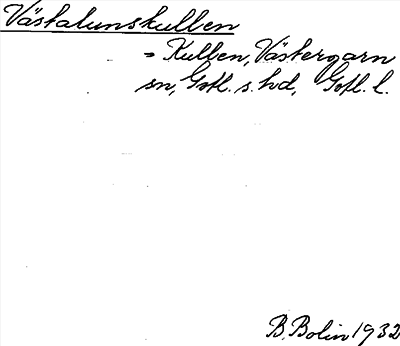 Västalunskullen
= Kullen, Västergarn
sn, Gotl. s. hd, Gotl. l.
B. Bolin 1932